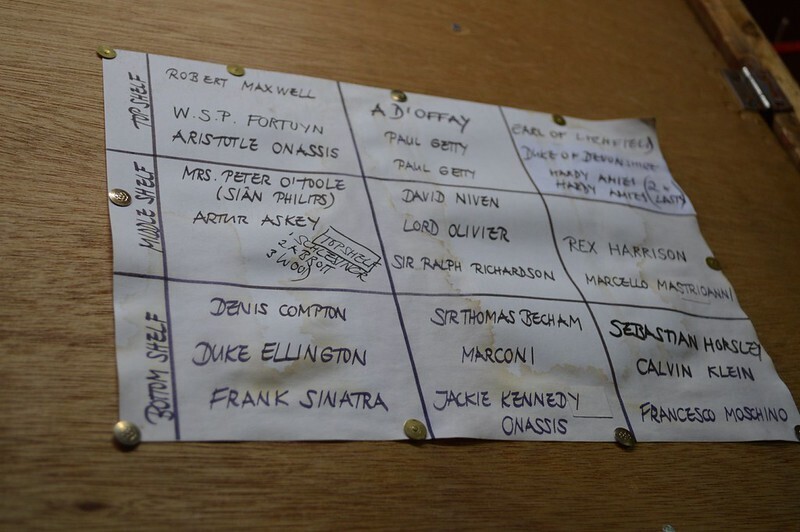 TOP SHELF
ROBERT MAXWELL
W.S.P. FORTUYN
ARISTOTLE ONASSIS
A D'OFFAY
PAUL GETTY
PAUL GETTY
EARL OF LICHFIELD
DUKE OF DEVONSHIRE
HARDY AMIES
HARDY AMIES
MIDDLE SHELF
MRS. PETER O'TOOLE
(SIÂN PHILIPS)
ARTUR ASKEY
TOP SHELF
DAVID NIVEN
LORD OLIVIER
SIR RALPH RICHARDSON
REX HARRISON
MARCELLO MASTRIOANNI
BOTTOM SHELF
DENIS COMPTON
DUKE ELLINGTON
FRANK SINATRA
SIR THOMAS BECHAM
MARCONI
JACKIE KENNEDY
ONASSIS
SEBASTIAN HORSLEY
CALVIN KLEIN
FRANCESCO MOSCHINO